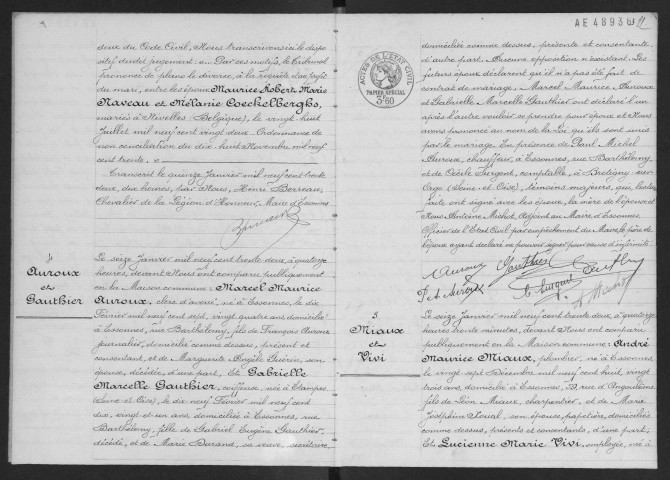 deux du Code Civil, Nous transcrivons ici le dispo
sitif dudit jugement :- Par ces motifs, le Tribunal
prononce de plano le divorce, à la requête et au profit
du mari, entre les époux Maurice Robert Marie
Naveau et Mélanie Coeckelberghs,
mariés à Nivelles (Belgique), le vingt huit
Juillet mil neuf cent vingt deux. Ordonnance de
non conciliation du dix huit Novembre mil neuf
cent trente.
Transcrit le quinze Janvier mil neuf cent trente
deux, dix heures, par Nous, Henri Berreau,
Chevalier de la Légion d'Honneur, Maire d'Essonnes
4
Auroux
et
Gauthier
Le seize Janvier mil neuf cent trente deux, à quatorze
heures, devant Nous ont comparu publiquement
en la Maison commune : Marcel Maurice
Auroux, clerc d'avoué, né à Essonnes, le dix
Février mil neuf cent sept, vingt quatre ans, domicilié
à Essonnes, rue Barthélemy, fils de François Auroux
journalier, domicilié comme dessus, présent et
consentant, et de Marguerite Angèle Guérin, son
épouse, décédée, d'une part, Et Gabrielle
Marcelle Gauthier, coiffeuse, née à Etampes
(Seine et Oise), le dix neuf Février mil neuf cent
dix, vingt-et-un ans, domiciliée à Essonnes, rue
Barthélemy, fille de Gabriel Eugène Gauthier,
décédé, et de Marie Durand, sa veuve,
AE 48930
11
ACTES DE L'ETAT CIVIL
PAPIER SPECIAL
3F60
domiciliée comme dessus, présente et consentante,
d'autre part. Aucune opposition n'existant. Les
futurs époux déclarent qu'il n'a pas été fait de
contrat de mariage. Marcel Maurice Auroux
et Gabrielle Marcelle Gauthier ont déclaré l'un
après l'autre vouloir se prendre pour époux et Nous
avons prononcé au nom de la loi qu'ils sont unis
par le mariage. En présence de Paul Michel
Auroux, chauffeur, à Essonnes, rue Barthélemy,
et de Cécile Surgent, comptable, à Bretigny sur
Orge (Seine et Oise), témoins majeurs, qui, lecture
faite ont signé avec les époux, la mère de l'épouse et
Nous Antoine Michot, Adjoint au Maire d'Essonnes,
Officier de l'Etat Civil par empêchement du Maire, le père de
l'époux ayant déclaré ne pouvoir signer pour cause d'infirmité.
M Auroux Gauthier
5
Miaux
et
Vivi
Le seize Janvier mil neuf cent trente deux, à quatorze
heures trente minutes, devant Nous ont comparu
publiquement en la Maison commune: André
Maurice Miaux, plombier, né à Essonnes
le vingt sept Décembre mil neuf cent huit, vingt
trois ans, domicilié à Essonnes, rue d'Angoulême,
fils de Léon Miaux, charpentier, et de Marie
Joséphine son épouse, papetière, domiciliés
comme dessus, présents et consentants, d'une part,
Et Lucienne Marie Vivi, employée, née à